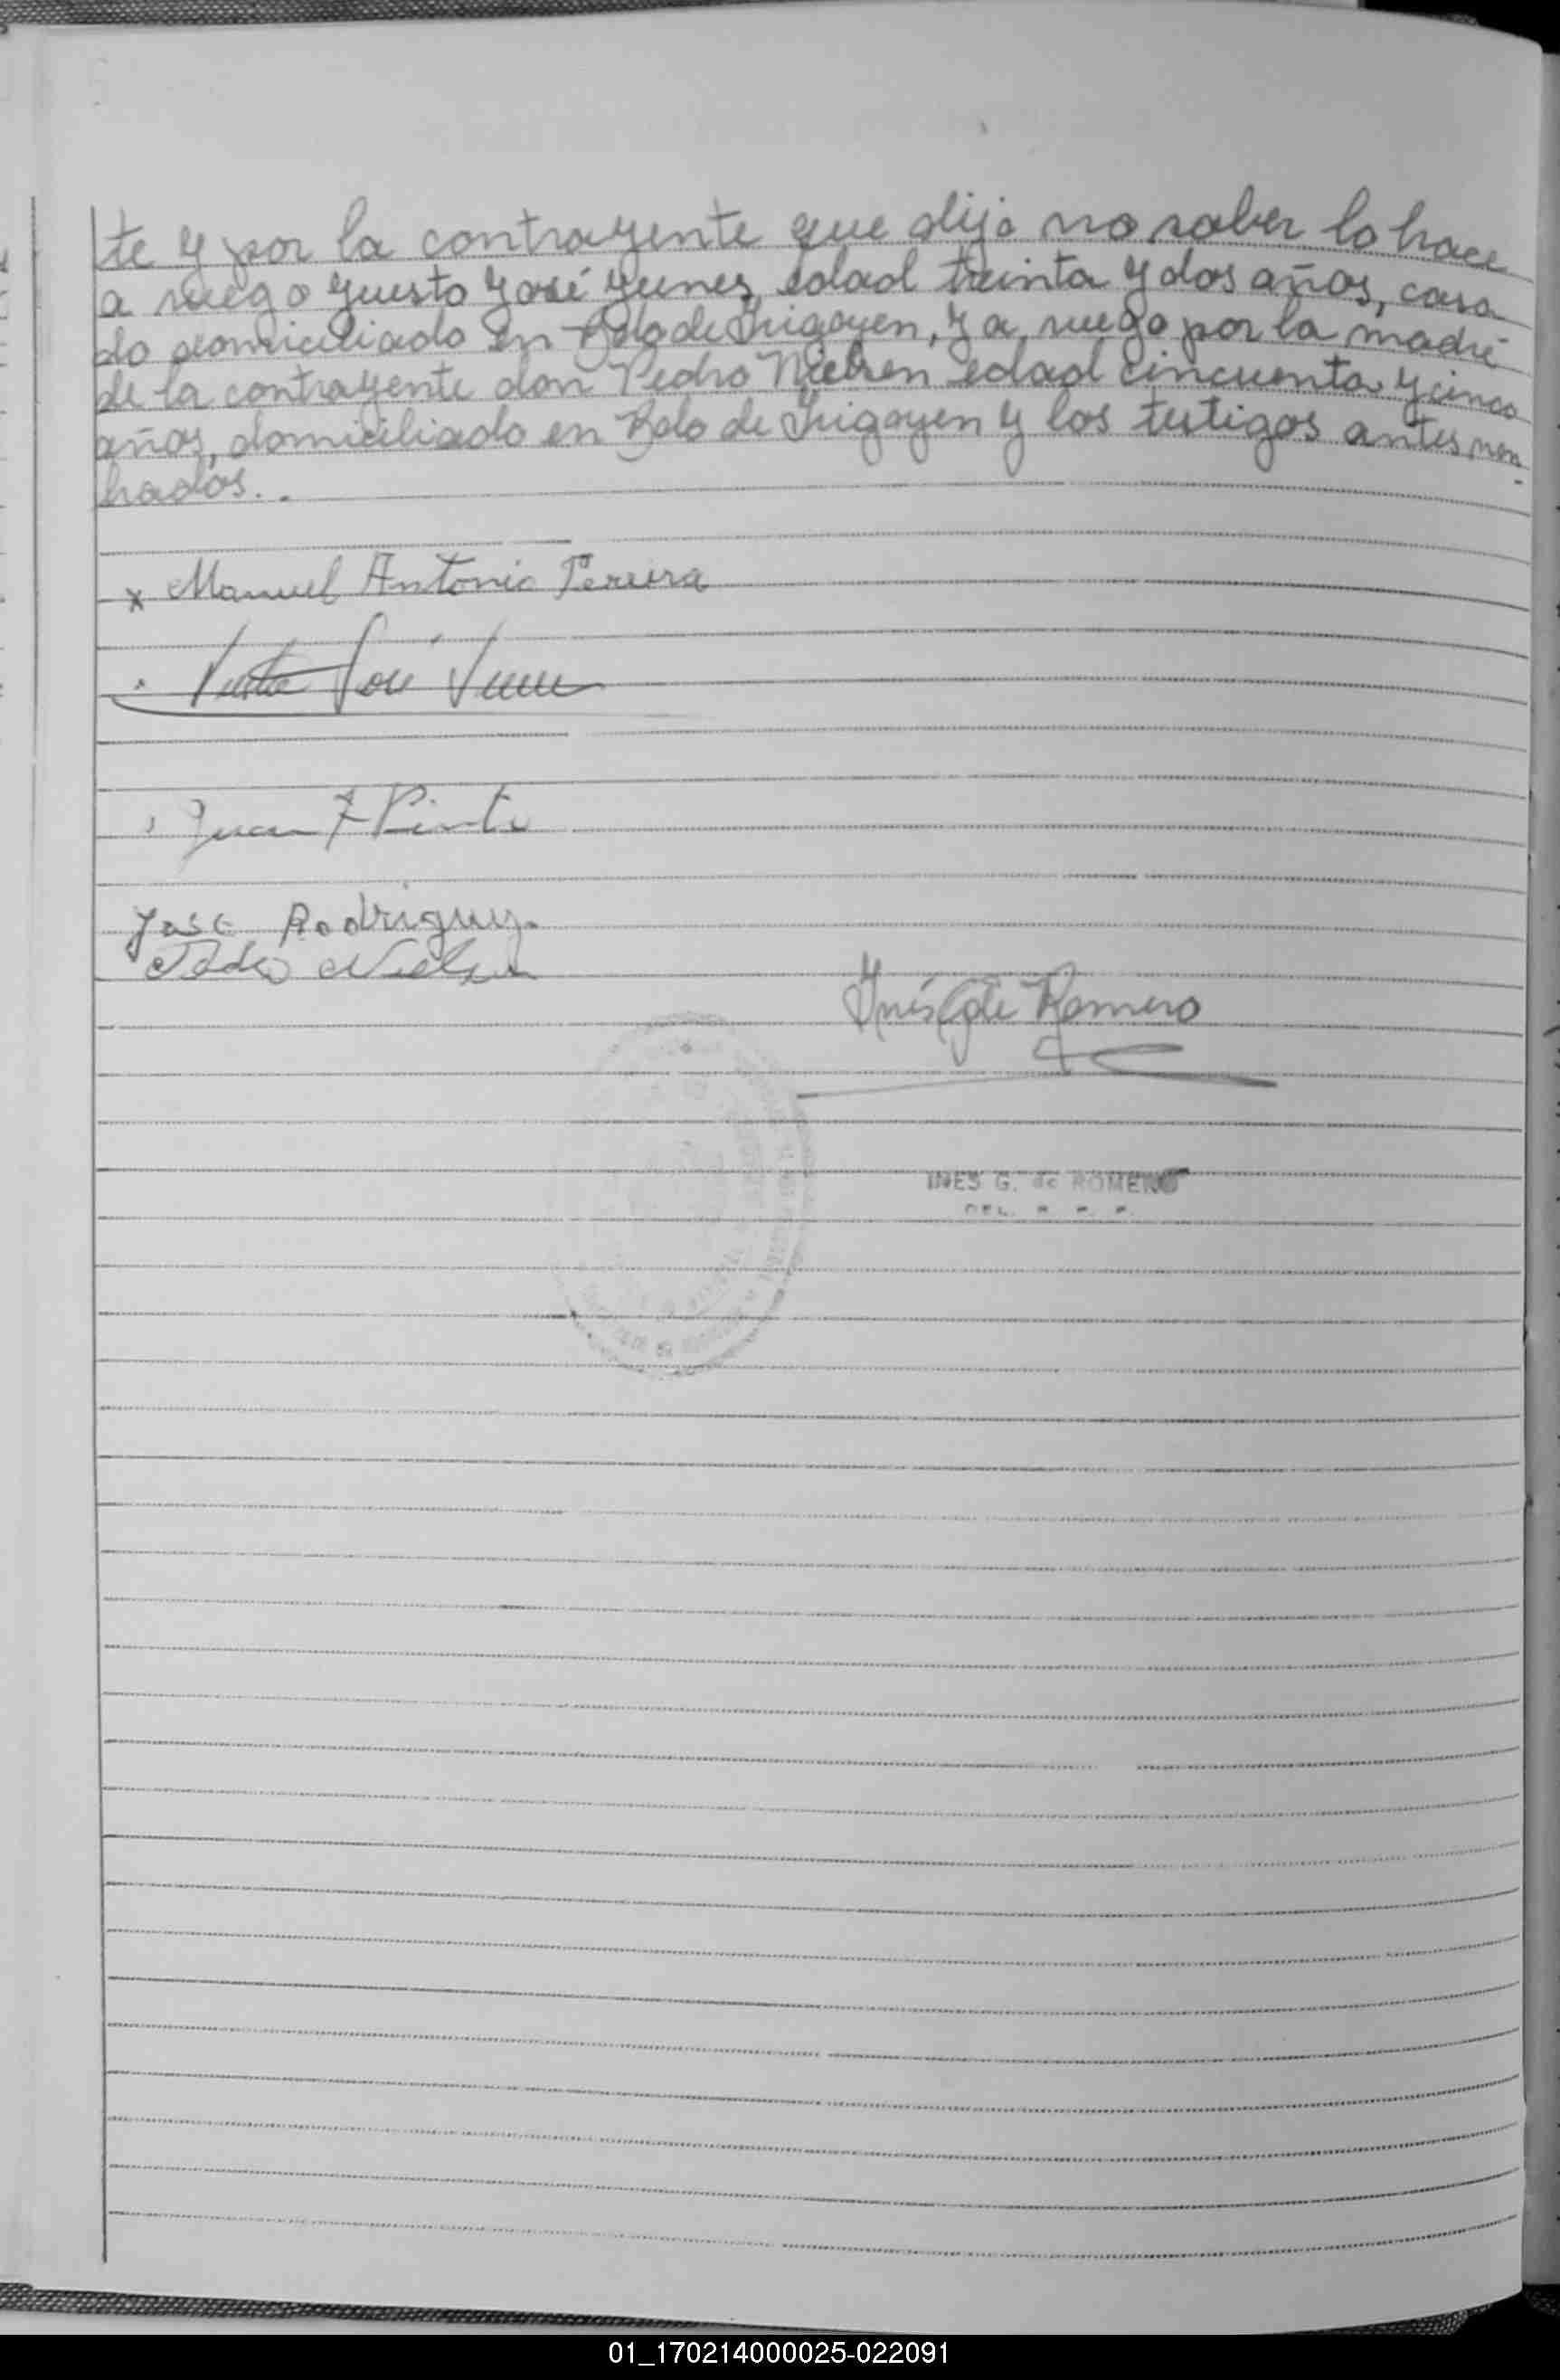 te y por la contrayente que dijo no saber lo hace
a ruego Yusto José Yunes, edad treinta y dos años, casa
do domiciliado en Bdo de Irigoyen, y a ruego por la madre
de la contrayente don Pedro Nielsen edad cincuenta y cinco
años, domiciliado en Bdo de Irigoyen y los testigos antes nom
brados..
x Manuel Antonio Pereira
Justo José Yunes
Juan F Pinto
José Rodriguez
Pedro Nielsen
Inés G de Romero
INES G. de ROMERO
DEL. R. P. P.
01_170214000025-022091